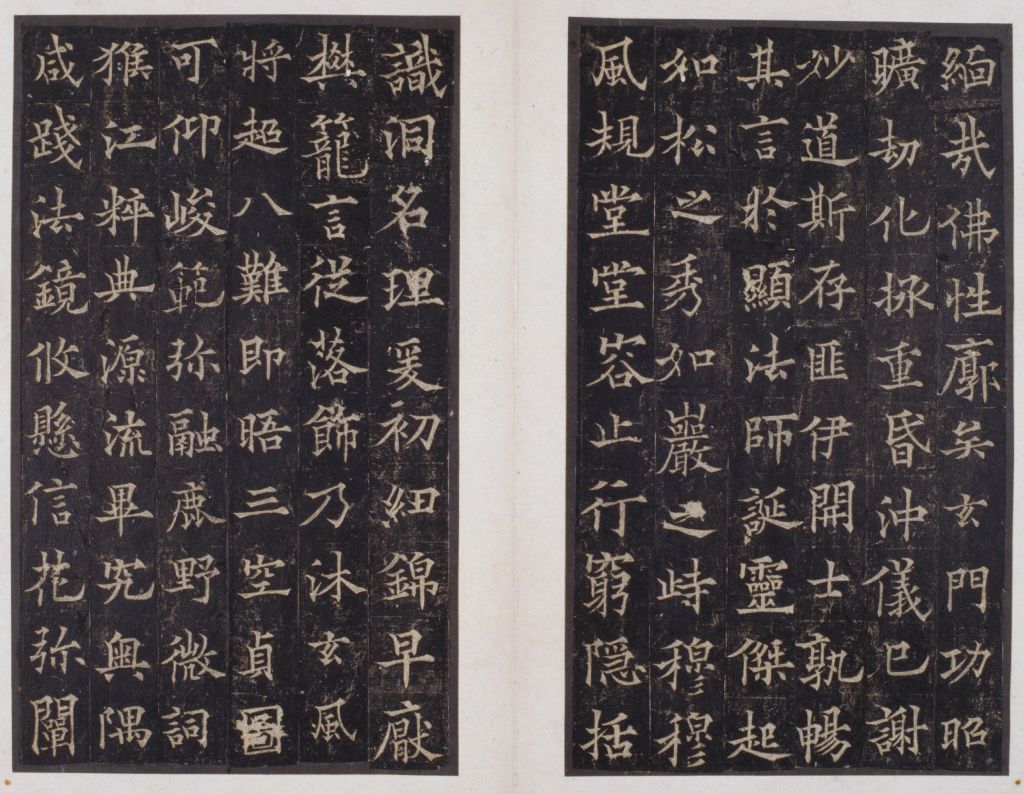 緬哉佛性廓矣玄門功昭
曠劫化拯重昏沖儀已謝
妙道斯存匪伊開士孰暢
其言於顯法師誕靈傑起
如松之秀如巖之峙穆穆
風規堂堂容止行窮隱括
識洞名理爰初紐錦早猒
樊籠言從落飾乃沐玄風
將超八難即晤三空貞圖
可仰峻範弥融鹿野微詞
猴江粹典源流畢究奧隅
咸踐法鏡攸懸信花弥闡